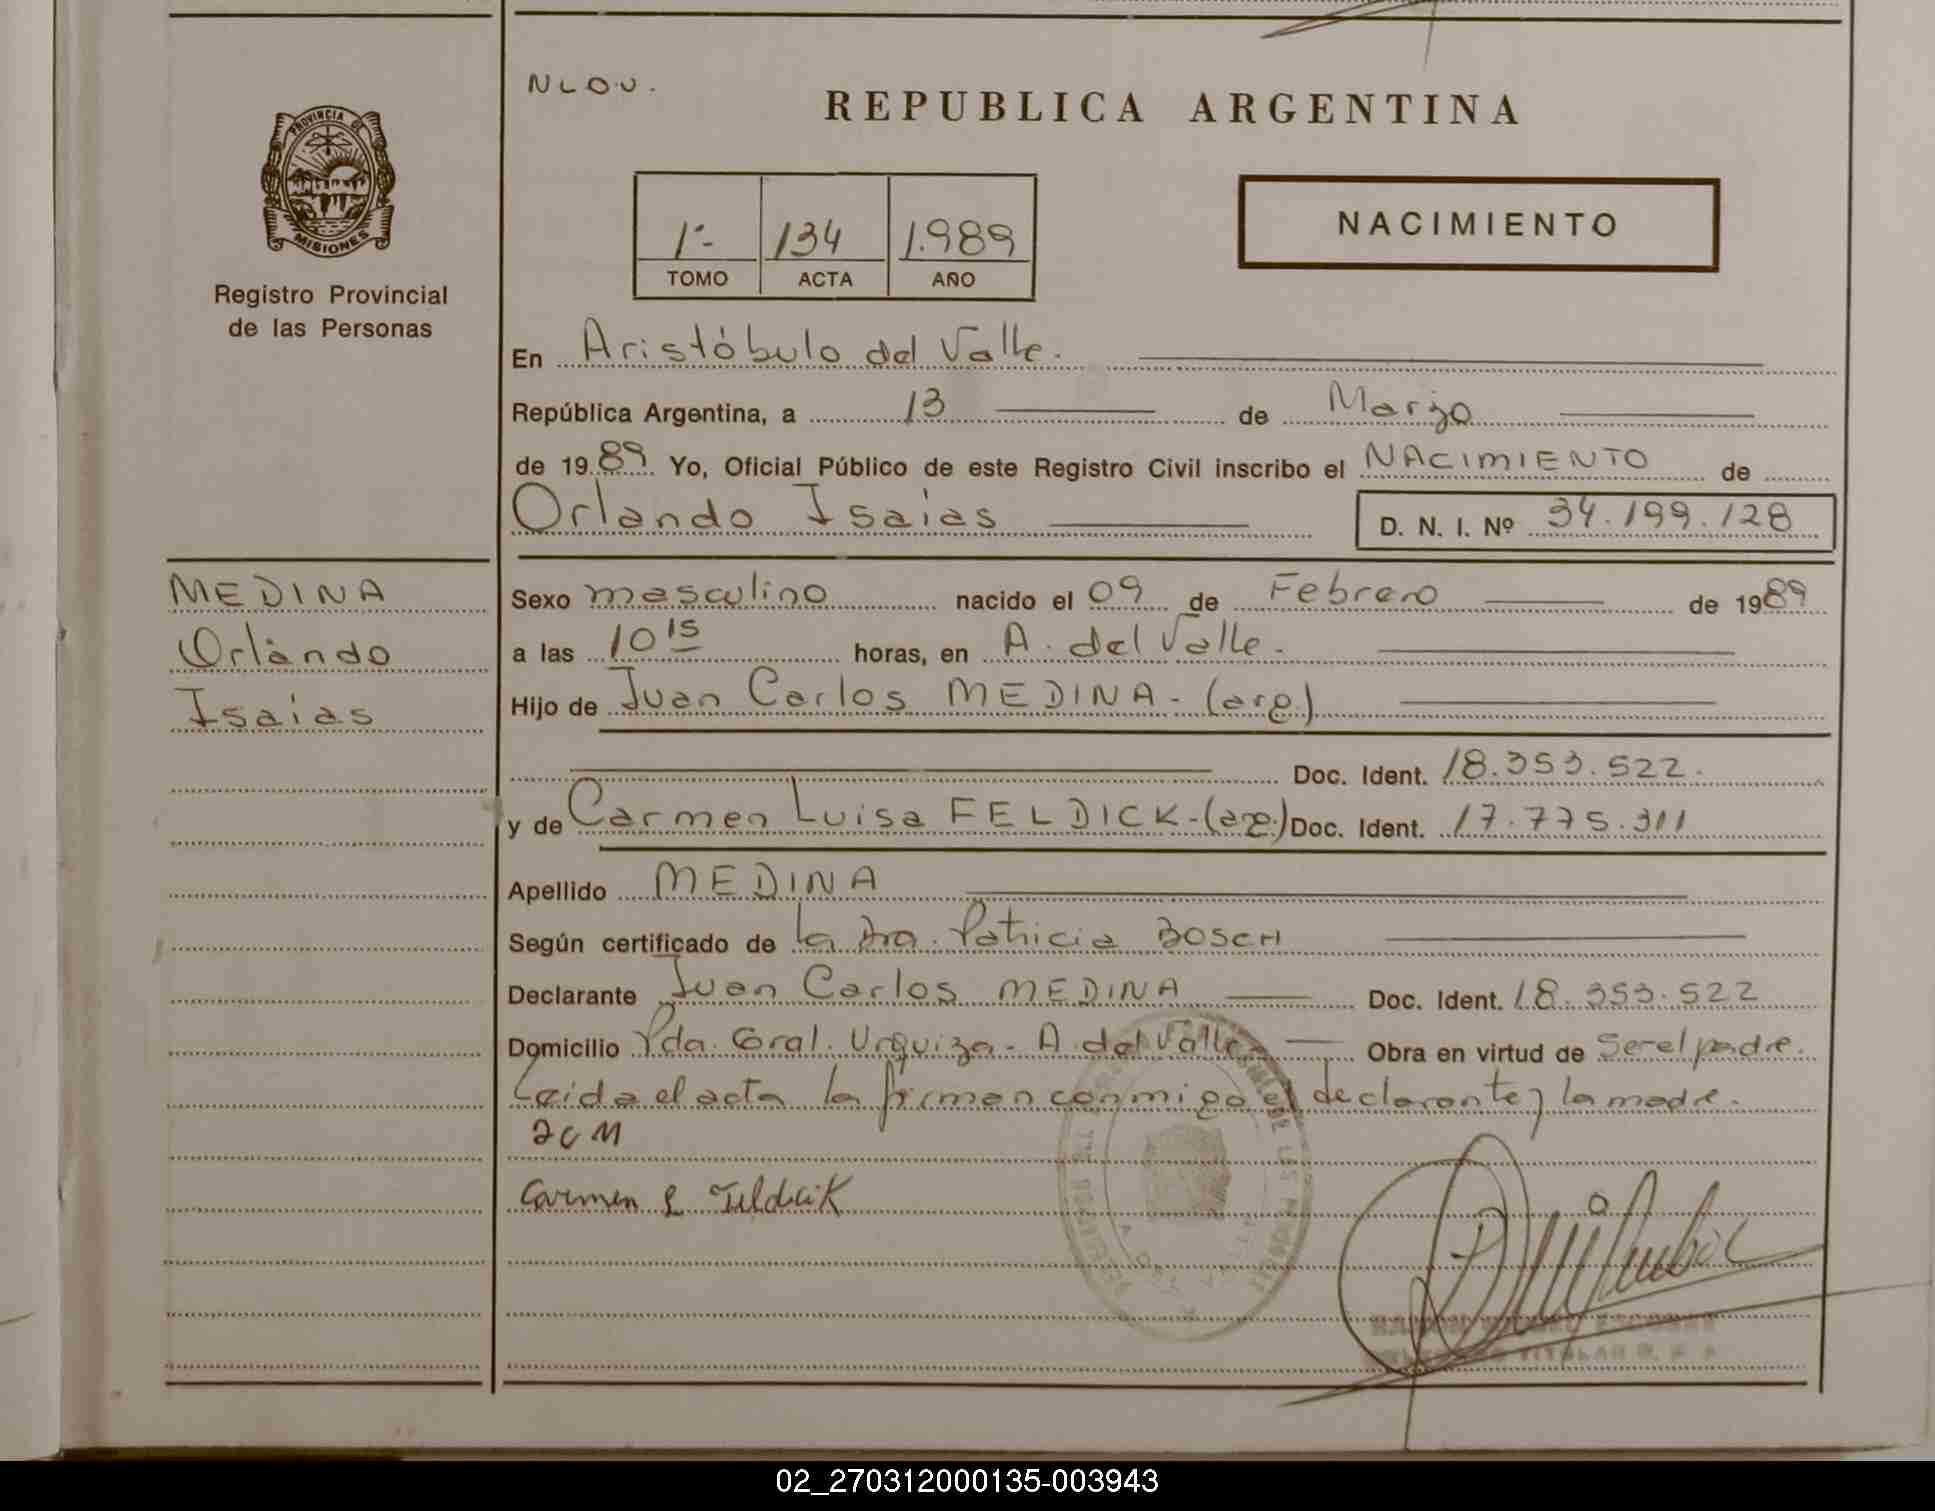 N L O.U.
REPUBLICA ARGENTINA
PROVINCIA DE
MISIONES
Registro Provincial
de las Personas
1º- 134 1.989
TOMO ACTA AÑO
NACIMIENTO
En Aristóbulo del Valle.
República Argentina, a 13 de Marzo
de 1989 Yo, Oficial Público de este Registro Civil inscribo el NACIMIENTO de
Orlando Isaias D. N. I. Nº 34.199.128
MEDINA
Orlando
Isaias
Sexo masculino nacido el 09 de Febrero de 1989
a las 10 15 horas, en A. del Valle.
Hijo de Juan Carlos MEDINA - (arg.)
Doc. Ident. 18.353.522.
y de Carmen Luisa FELDICK - (arg.) Doc. Ident. 17.775.311
Apellido MEDINA
Según certificado de la Dra. Patricia BOSCH
Declarante Juan Carlos MEDINA Doc. Ident. 18.353.522
Domicilio Pda. Gral. Urquiza - A. del Valle Obra en virtud de Ser el padre.
Leida el acta la firman conmigo el declarante y la madre.
J C M
Carmen L Feldcik
02_270312000135-003943